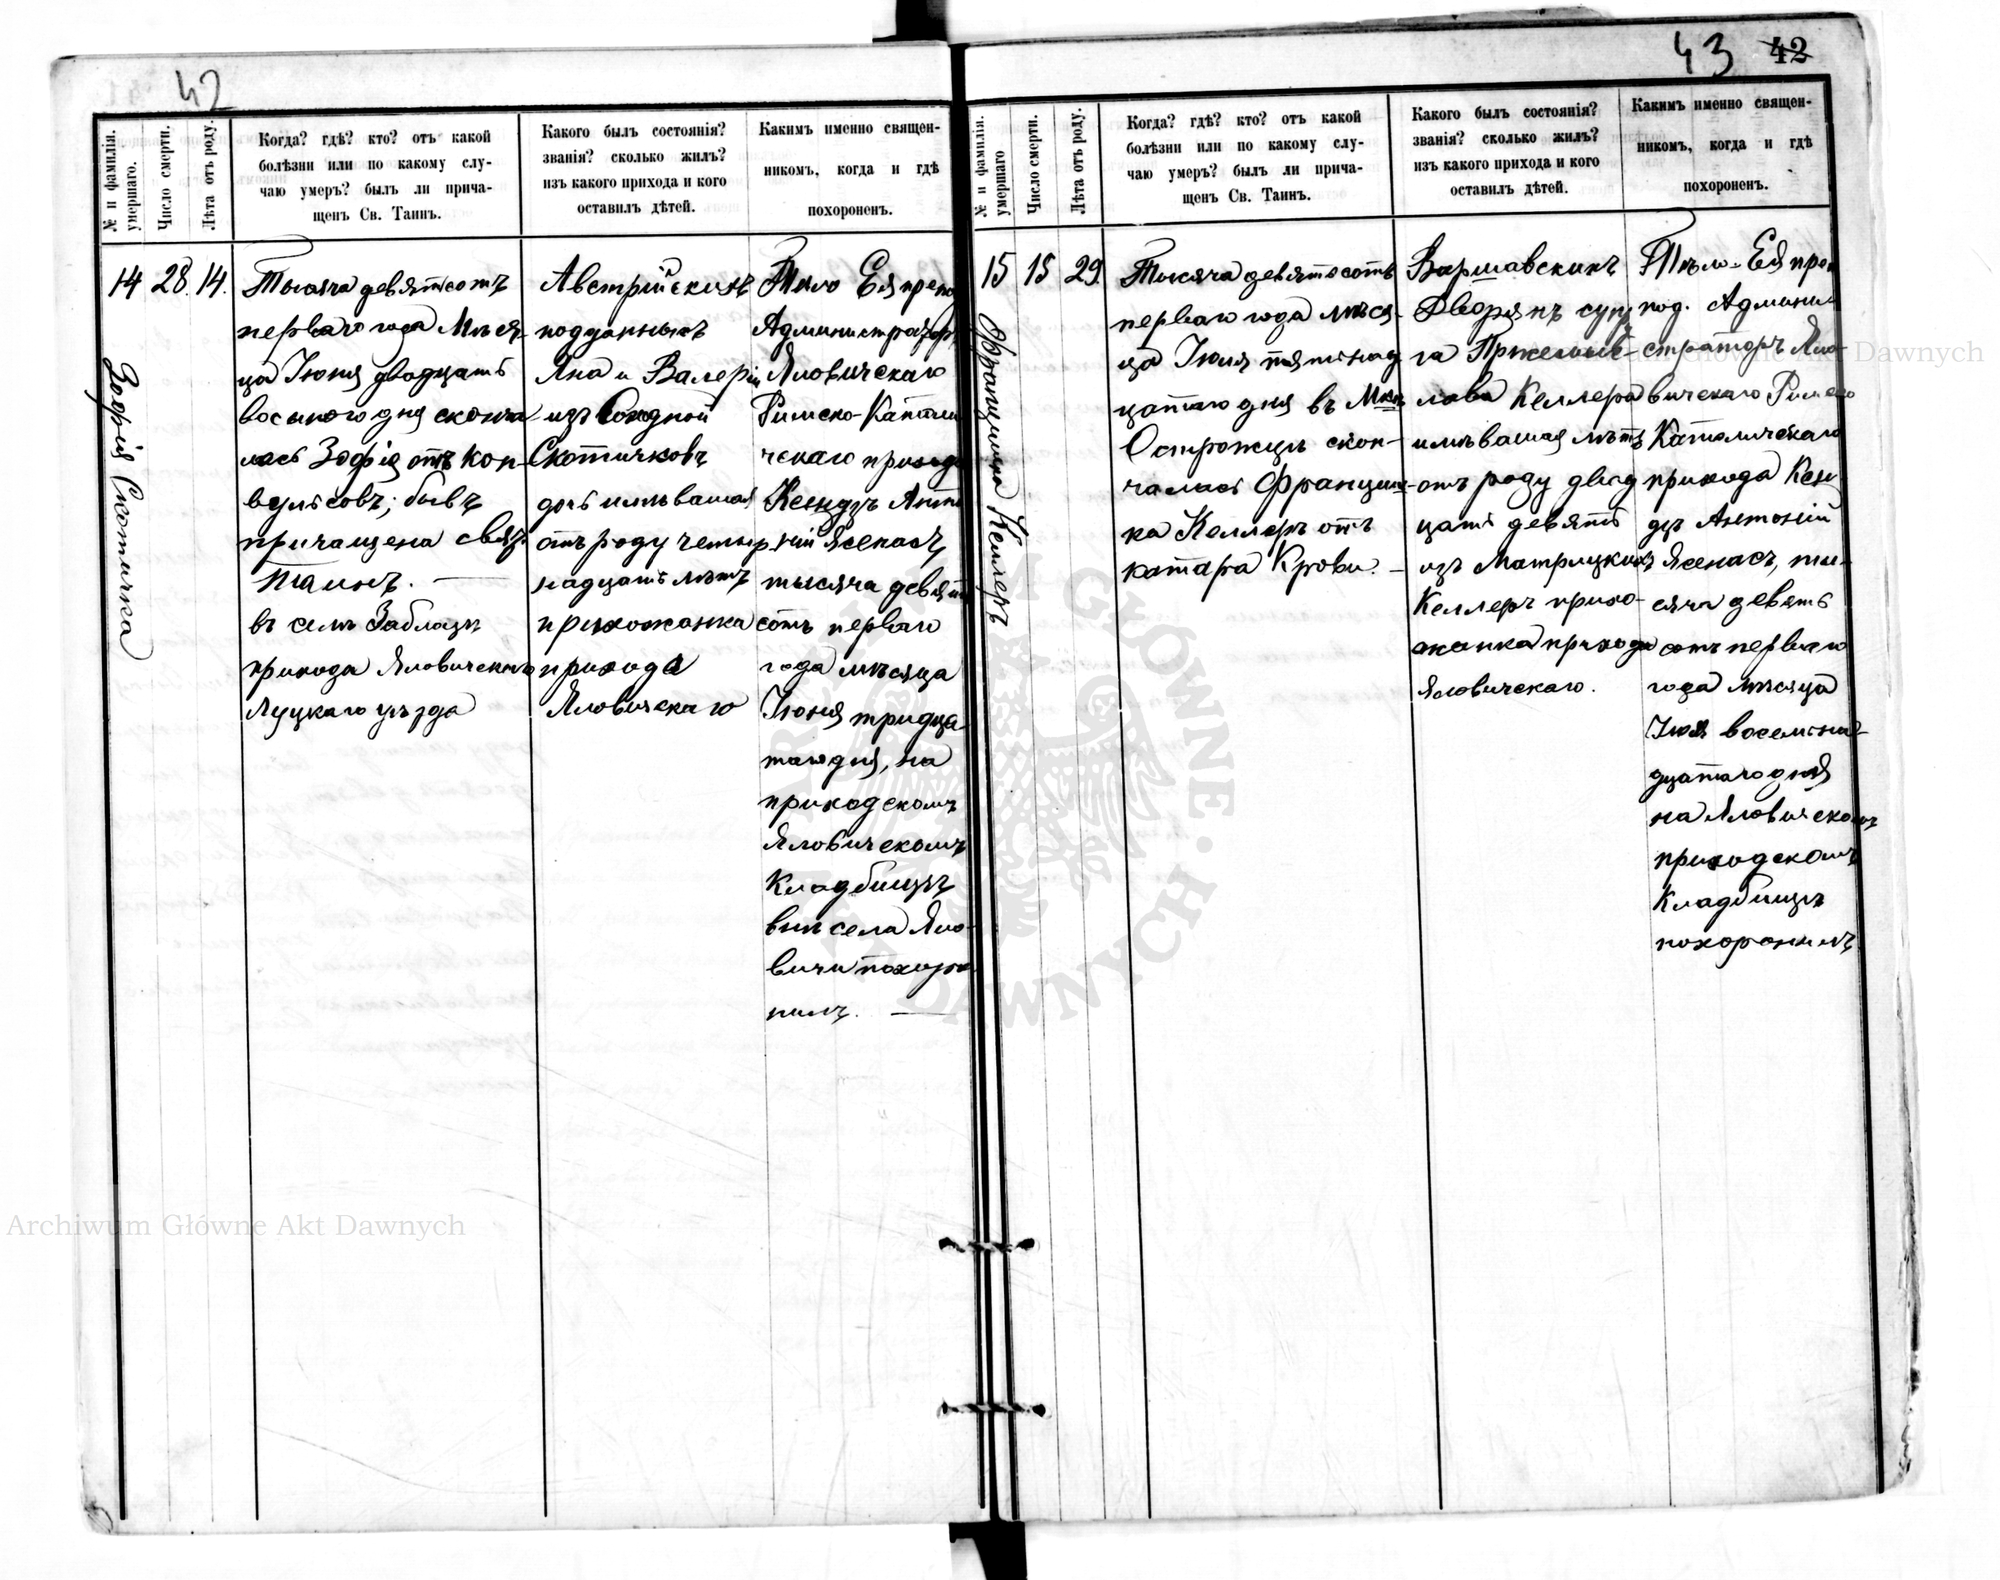 42
№ и фамилія.
умершаго.
Число смерти.
Лѣта отъ роду.
Когда? гдѣ? кто? отъ какой
болѣзни или по какому слу-
чаю умеръ? былъ ли прича-
щенъ Св. Таинъ.
Какого былъ состоянія?
званія? сколько жилъ?
изъ какого прихода и кого
оставилъ дѣтей.
Какимъ именно священ-
никомъ, когда и гдѣ
похороненъ.
14
Зофія Скотичка
28.
14.
Тысяча девятьсотъ
перваго года Мѣся-
ца Іюня двадцать
восьмого дня сконча
лась Зофія отъ кон-
вульсовъ; бывъ
причащена свят.
Таинъ. —
въ селѣ Заблацѣ
прихода Яловичскаго
Луцкаго уѣзда
Австрійскихъ
подданныхъ
Яна и Валеріи
изъ
Скотичковъ
дочь имѣвшая
отъ роду четыр
надцать лѣтъ
прихожанка
прихода
Яловичскаго
Тѣло Ея препо
Администраторъ
Яловичскаго
Римско-Католи
ческаго прихода
Ксендзъ Анто
ній Ясенасъ,
тысяча девять
сотъ перваго
года мѣсяца
Іюня тридца-
таго дня, на
приходскомъ
Яловичскомъ
Кладбищѣ
внѣ села Яло-
вичи похоро
нилъ. —
43 42
№ и фамилія.
умершаго
Число смерти.
Лѣта отъ роду.
Когда? гдѣ? кто? отъ какой
болѣзни или по какому слу-
чаю умеръ? былъ ли прича-
щенъ Св. Таинъ.
Какого былъ состоянія?
званія? сколько жилъ?
изъ какого прихода и кого
оставилъ дѣтей.
Какимъ именно священ-
никомъ, когда и гдѣ
похороненъ.
15
Францишка Келлеръ
15
29.
Тысяча девятьсотъ
перваго года мѣся-
ца Іюля пятнад
цатаго дня въ Мѣс.
Острожцѣ скон-
чалась Францыш-
ка Келлеръ отъ
катара Крови. —
Варшавскихъ
Дворянъ супр
га Пржемыс-
лава Келлера
имѣвшая лѣтъ
отъ роду двад
цать девять
изъ Матрицкихъ
Келлеръ прихо-
жанка прихода
Яловичскаго.
Тѣло Ея преп
под. Админи-
страторъ Яло-
вичскаго Римско
Католическаго
прихода Ксен
дзъ Антоній
Ясенасъ, ты-
сяча девять
сотъ перваго
года мѣсяца
Іюля восемьна-
дцатаго дня
на Яловичскомъ
приходскомъ
Кладбищѣ
похоронилъ.
Archiwum Główne Akt Dawnych
Archiwum Główne Akt Dawnych
ARCHIWUM GŁÓWNE · AKT DAWNYCH